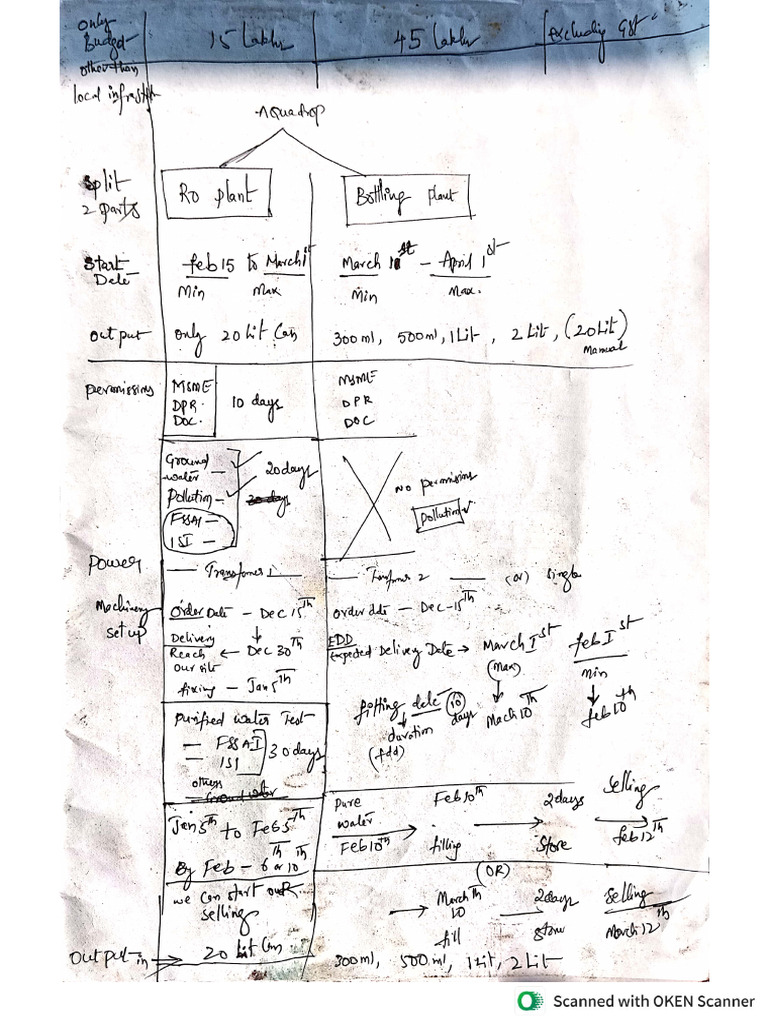 Only Budget 15 Lakhs 45 Lakhs excluding GST
other than
local infrastr
Aquadrop
Split 2 parts
Ro plant
Bottling Plant
Start Date
feb 15 to March 1st
Min Max
March 1st - April 1st
Min Max.
output only 20 Lit Can
300ml, 500ml, 1Lit, 2Lit, (20Lit)
Manual
permissions
MSME
DPR.
DOC.
10 days
MSME
DPR
DOC
Ground water -
Pollution -
FSSAI -
ISI -
20 days
30 days
NO permissions
Pollution
Power
Transfomer 1
Transfomer 2 (or) Single
Machinery set up
Order Date - Dec 15th
Delivery
Reach Our site ← Dec 30th
fixing - Jan 5th
order date - Dec-15th
EDD
Expeded Delivery Date → March 1st
(max)
feb 1st
min
fitting date 10 days
duration
(fdd)
Mach 10th
feb 10th
Purified water Test
- FSSAI
- ISI
30 days
others
Ground water
Jan 5th to Feb 5th
By Feb - 6th or 10th
we can start our selling
Pure water Feb 10th 2 days Selling
Feb 10th filling Store feb 12th
(OR)
March 10th 2 days Selling
fill store March 12th
Output in → 20 Lit Can
300ml, 500ml, 1Lit, 2Lit
Scanned with OKEN Scanner